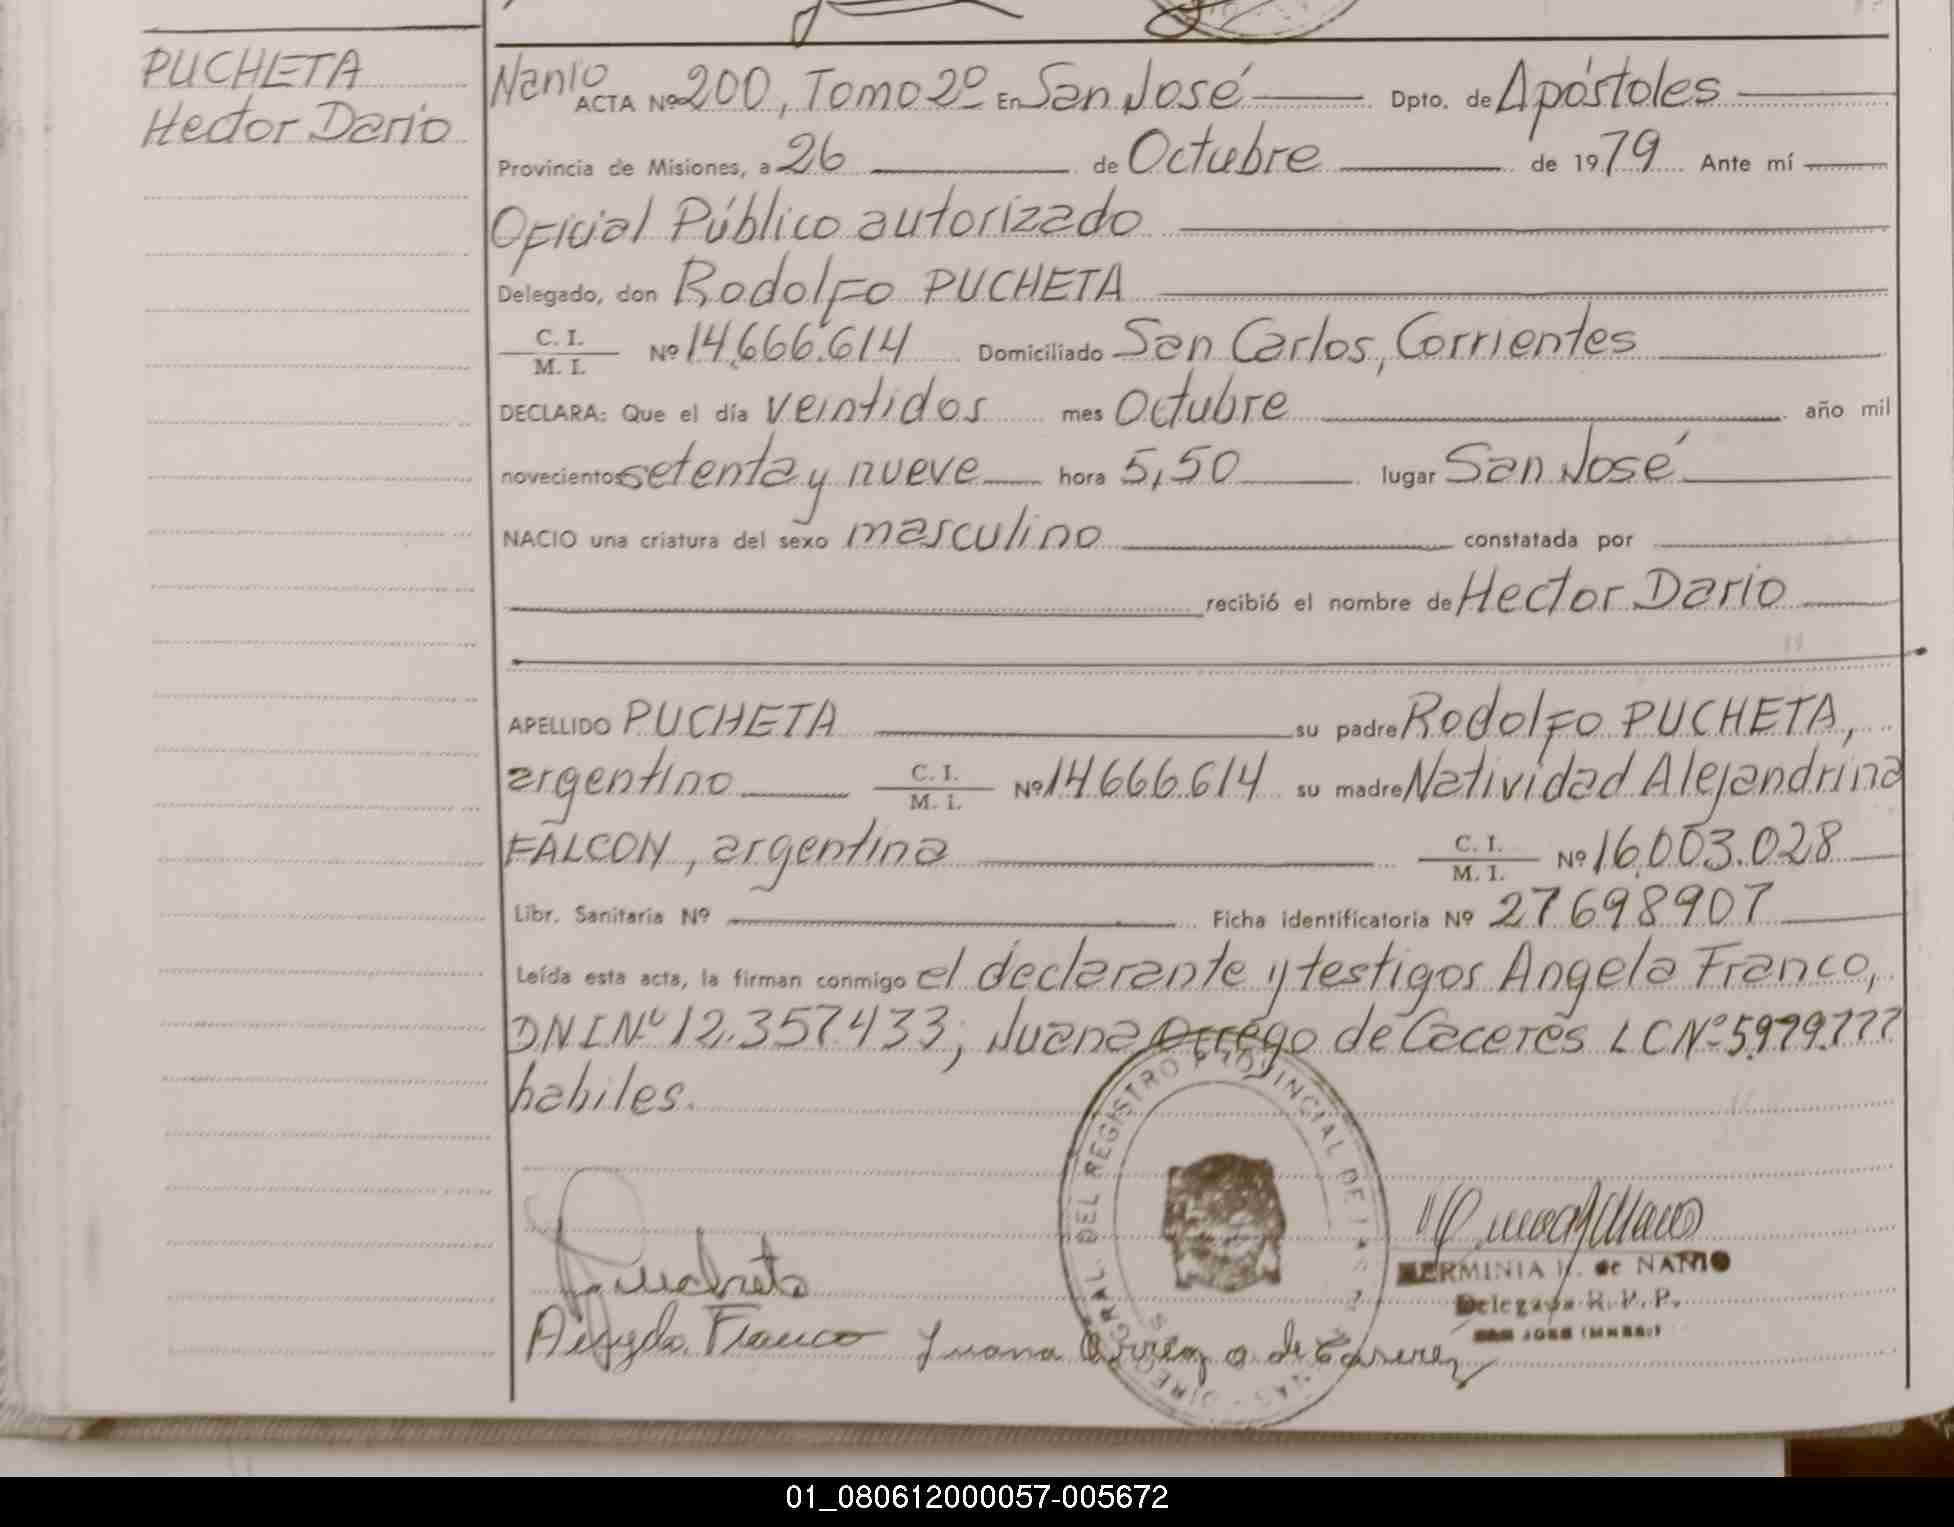 PUCHETA
Hector Dario
Nanio
ACTA Nº 200, Tomo 2º En San José Dpto. de Apóstoles
Provincia de Misiones, a 26 de Octubre de 1979 Ante mí
Oficial Público autorizado
Delegado, don Rodolfo PUCHETA
C. I.
M. I. Nº 14.666.614 Domiciliado San Carlos, Corrientes
DECLARA: Que el día veintidos mes Octubre año mil
novecientos setenta y nueve hora 5,50 lugar San José
NACIO una criatura del sexo masculino constatada por
recibió el nombre de Hector Dario
APELLIDO PUCHETA su padre Rodolfo PUCHETA,
argentino C. I. M. I. Nº 14.666.614 su madre Natividad Alejandrina
FALCON, argentina C. I. M. I. Nº 16.003.028
Libr. Sanitaria Nº Ficha identificatoria Nº 27698907
Leída esta acta, la firman conmigo el declarante y testigos Angela Franco,
DNI Nº 12.357.433, Juana Orrego de Caceres LC Nº 5.979.777
habiles.
DEL REGISTRO PROVINCIAL DE LAS
HERMINIA de NANIO
Delegada R. P. P.
SAN JOSE
Pucheta
Angela Franco Juana Orrego de Caseres
01_080612000057-005672